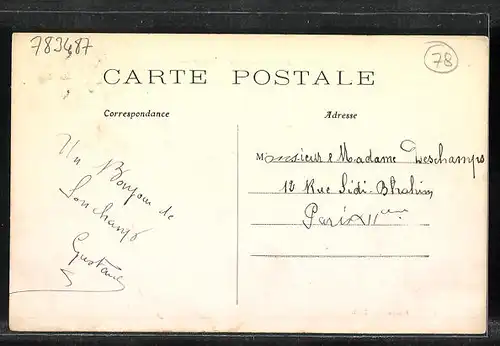 783487
78
CARTE POSTALE
Correspondance
Adresse
Un Bonjour de
Lonchamp
Gustave
Monsieur & Madame Deschamps
12 Rue Sidi-Brahim
Paris XIIeme